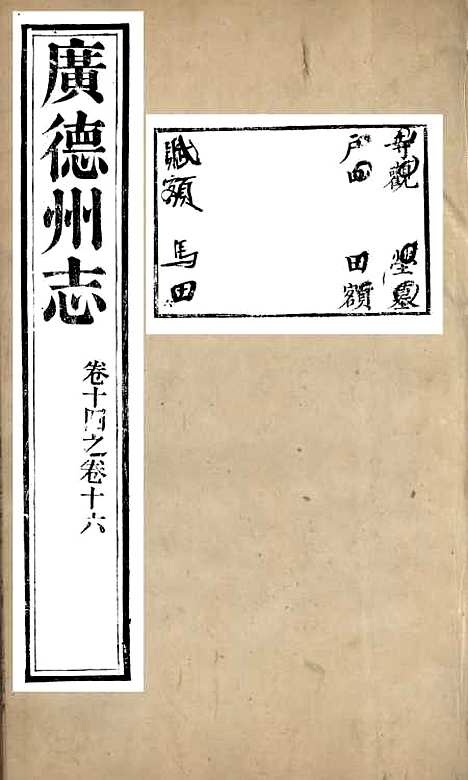 廣德州志
卷十四之卷十六
寺觀 塋墓
戶口 田額
賦額 馬田